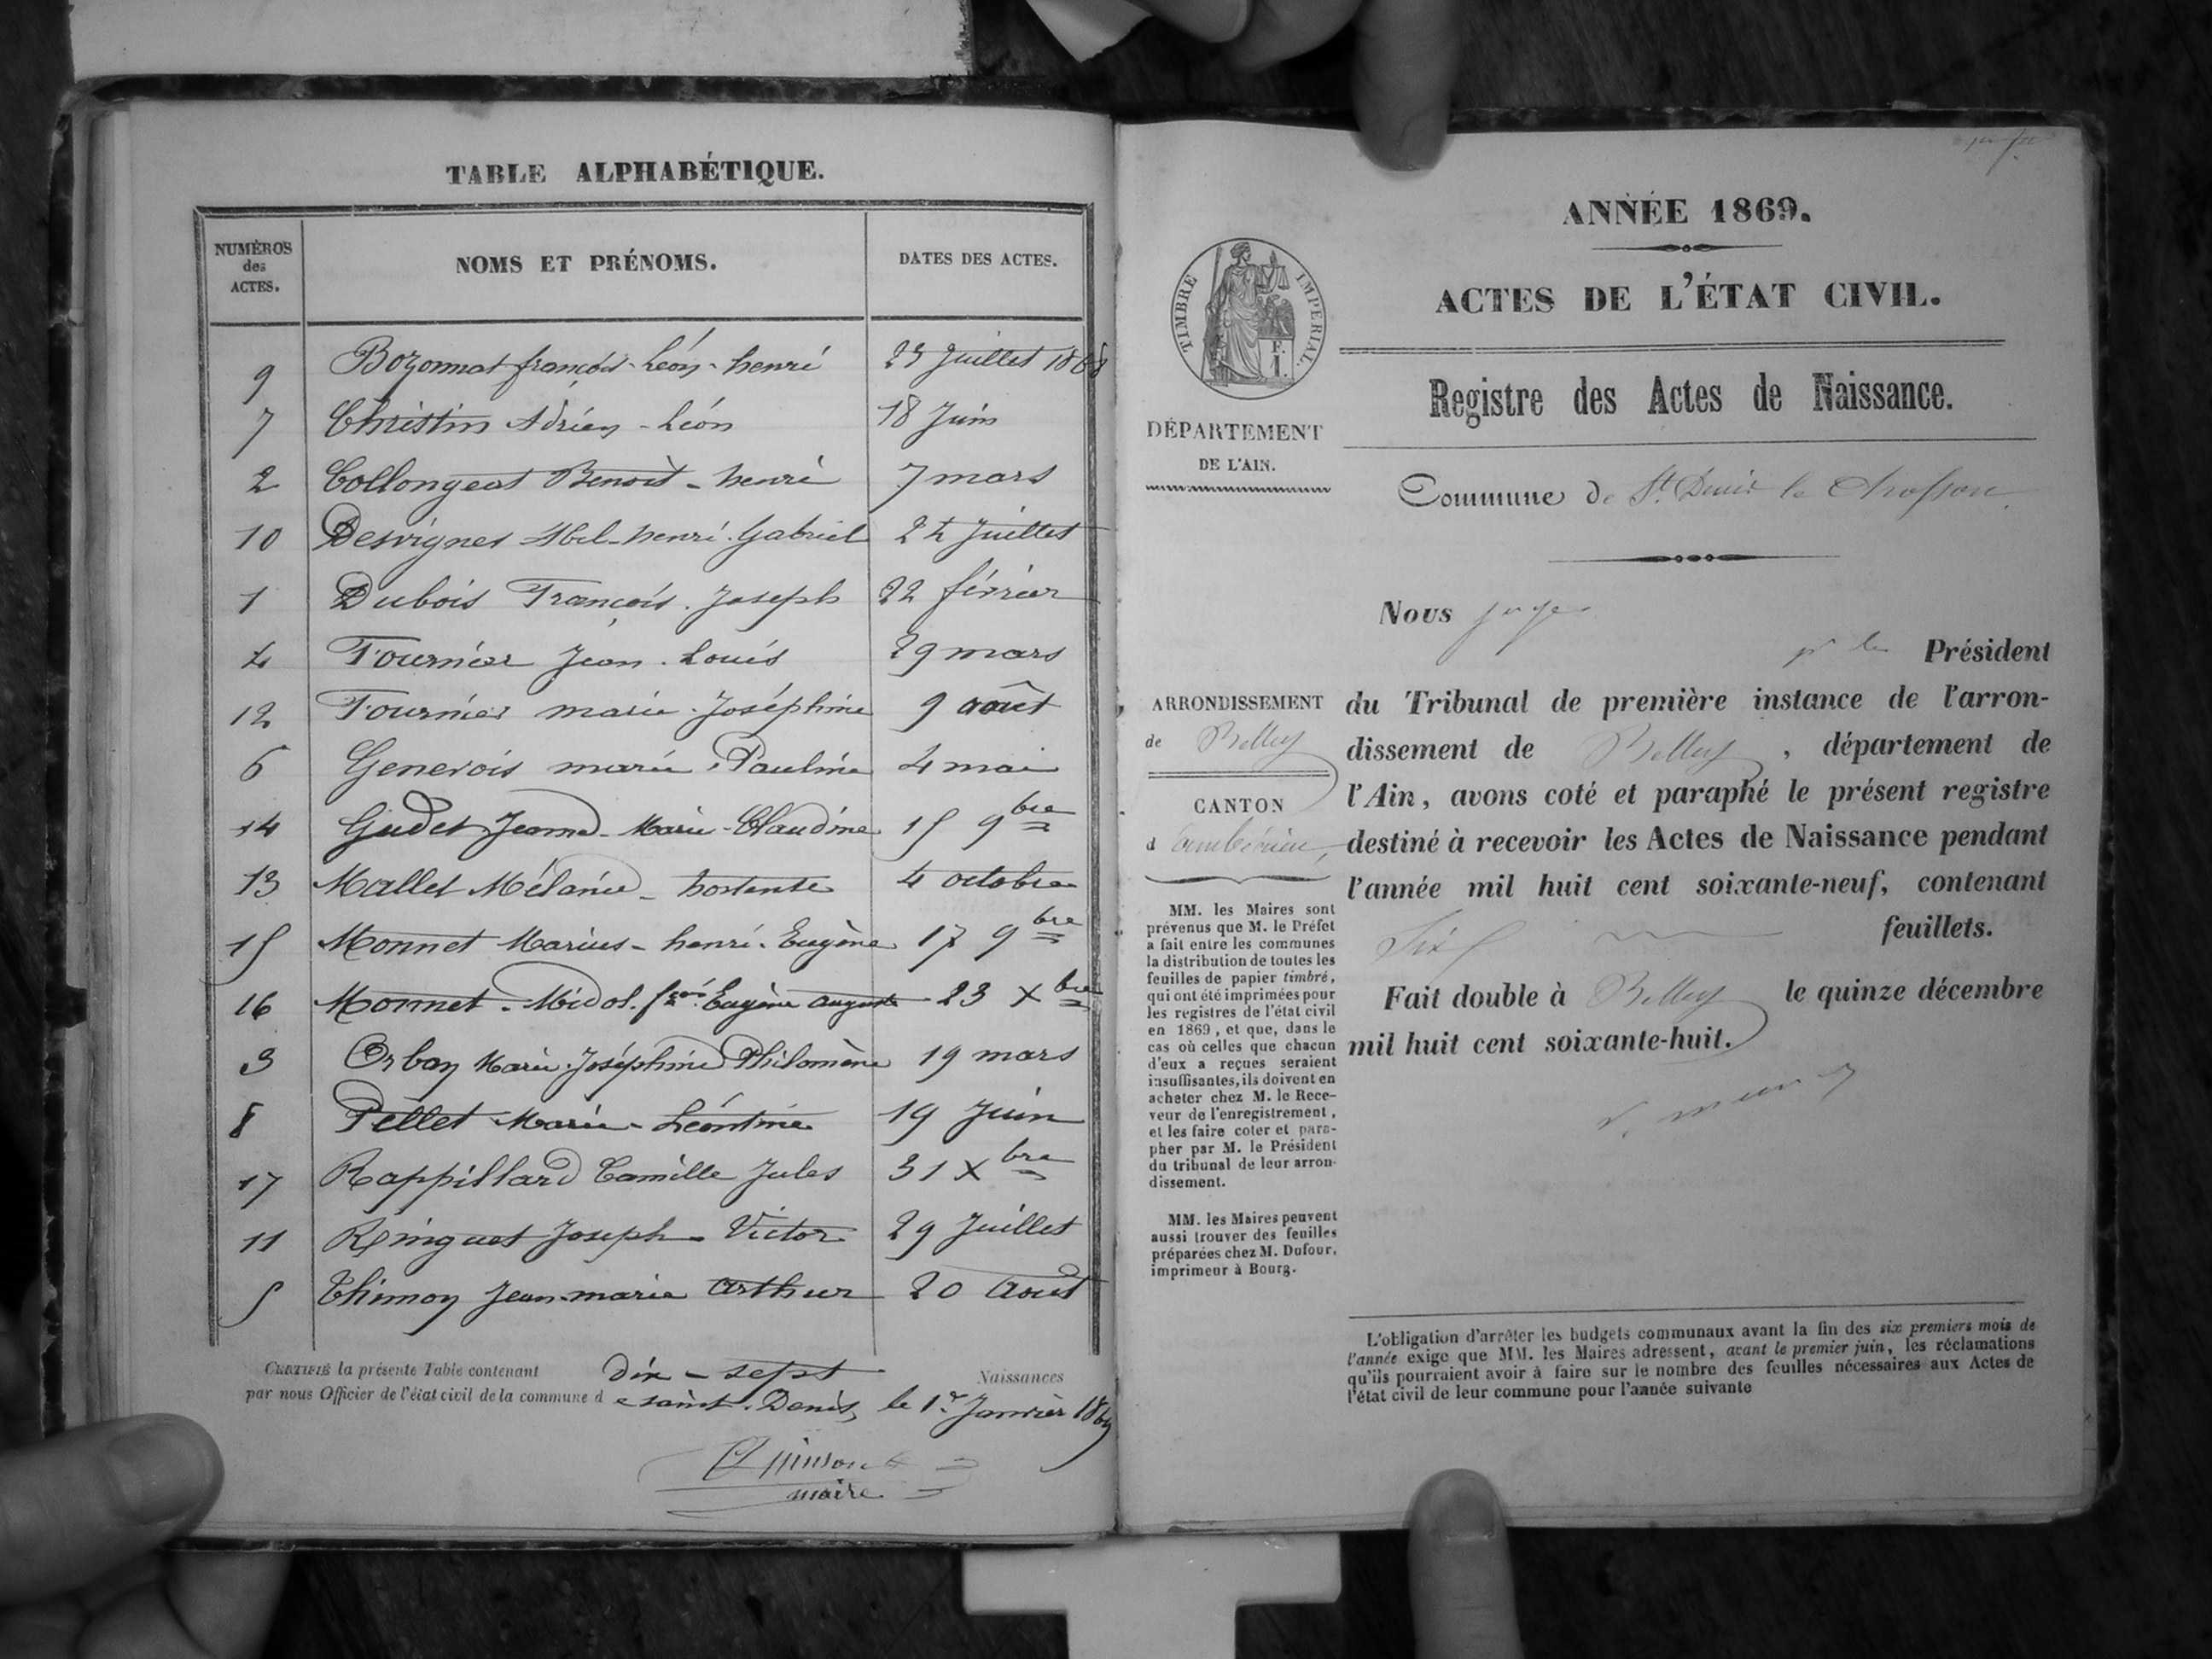 TABLE ALPHABÉTIQUE.
NUMÉROS des ACTES.
NOMS ET PRÉNOMS.
DATES DES ACTES.
9 Bozonnat françois-Léon-henri 23 Juillet 1868
7 Christin Adrien-Léon 18 Juin
2 Collongeat Benoit-henri 7 mars
10 Desvignes Abel-henri-Gabriel 24 Juillet
1 Dubois François-Joseph 22 février
4 Fournier Jean-Louis 29 mars
12 Fournier marie-Joséphine 9 août
6 Genevois marie-Pauline 4 mai
14 Gudet Jeanne-Marie-Claudine 15 9bre
13 Mallet Mélanie-hortente 4 octobre
15 Monnet Marius-henri-Eugène 17 9bre
16 Monnet-Midol. fçois Eugène auguste 23 Xbre
3 Orban Marie-Joséphine Philomène 19 mars
8 Pellet Marie-Léontine 19 Juin
17 Rappillard Camille Jules 31 Xbre
11 Ringuet Joseph-Victor 29 Juillet
5 Thimon Jean-marie Arthur 20 Août
CERTIFIÉ la présente Table contenant dix-sept Naissances
par nous Officier de l'état civil de la commune de saint-Denis, le 1er Janvier 1869
maire
ANNÉE 1869.
ACTES DE L'ÉTAT CIVIL.
Registre des Actes de Naissance.
TIMBRE IMPÉRIAL.
F.
1.
DÉPARTEMENT
DE L'AIN.
Commune de St. Denis le Chosson
Nous juge
pr le Président
ARRONDISSEMENT
de Belley
CANTON
d'ambérieu,
du Tribunal de première instance de l'arron-
dissement de Belley, département de
l'Ain, avons coté et paraphé le présent registre
destiné à recevoir les Actes de Naissance pendant
l'année mil huit cent soixante-neuf, contenant
Six feuillets.
Fait double à Belley le quinze décembre
mil huit cent soixante-huit.
MM. les Maires sont
prévenus que M. le Préfet
a fait entre les communes
la distribution de toutes les
feuilles de papier timbré,
qui ont été imprimées pour
les registres de l'état civil
en 1869, et que, dans le
cas où celles que chacun
d'eux a reçues seraient
insuffisantes, ils doivent en
acheter chez M. le Rece-
veur de l'enregistrement,
et les faire coter et para-
pher par M. le Président
du tribunal de leur arron-
dissement.
MM. les Maires peuvent
aussi trouver des feuilles
préparées chez M. Dufour,
imprimeur à Bourg.
L'obligation d'arrêter les budgets communaux avant la fin des six premiers mois de
l'année exige que MM. les Maires adressent, avant le premier juin, les réclamations
qu'ils pourraient avoir à faire sur le nombre des feuilles nécessaires aux Actes de
l'état civil de leur commune pour l'année suivante